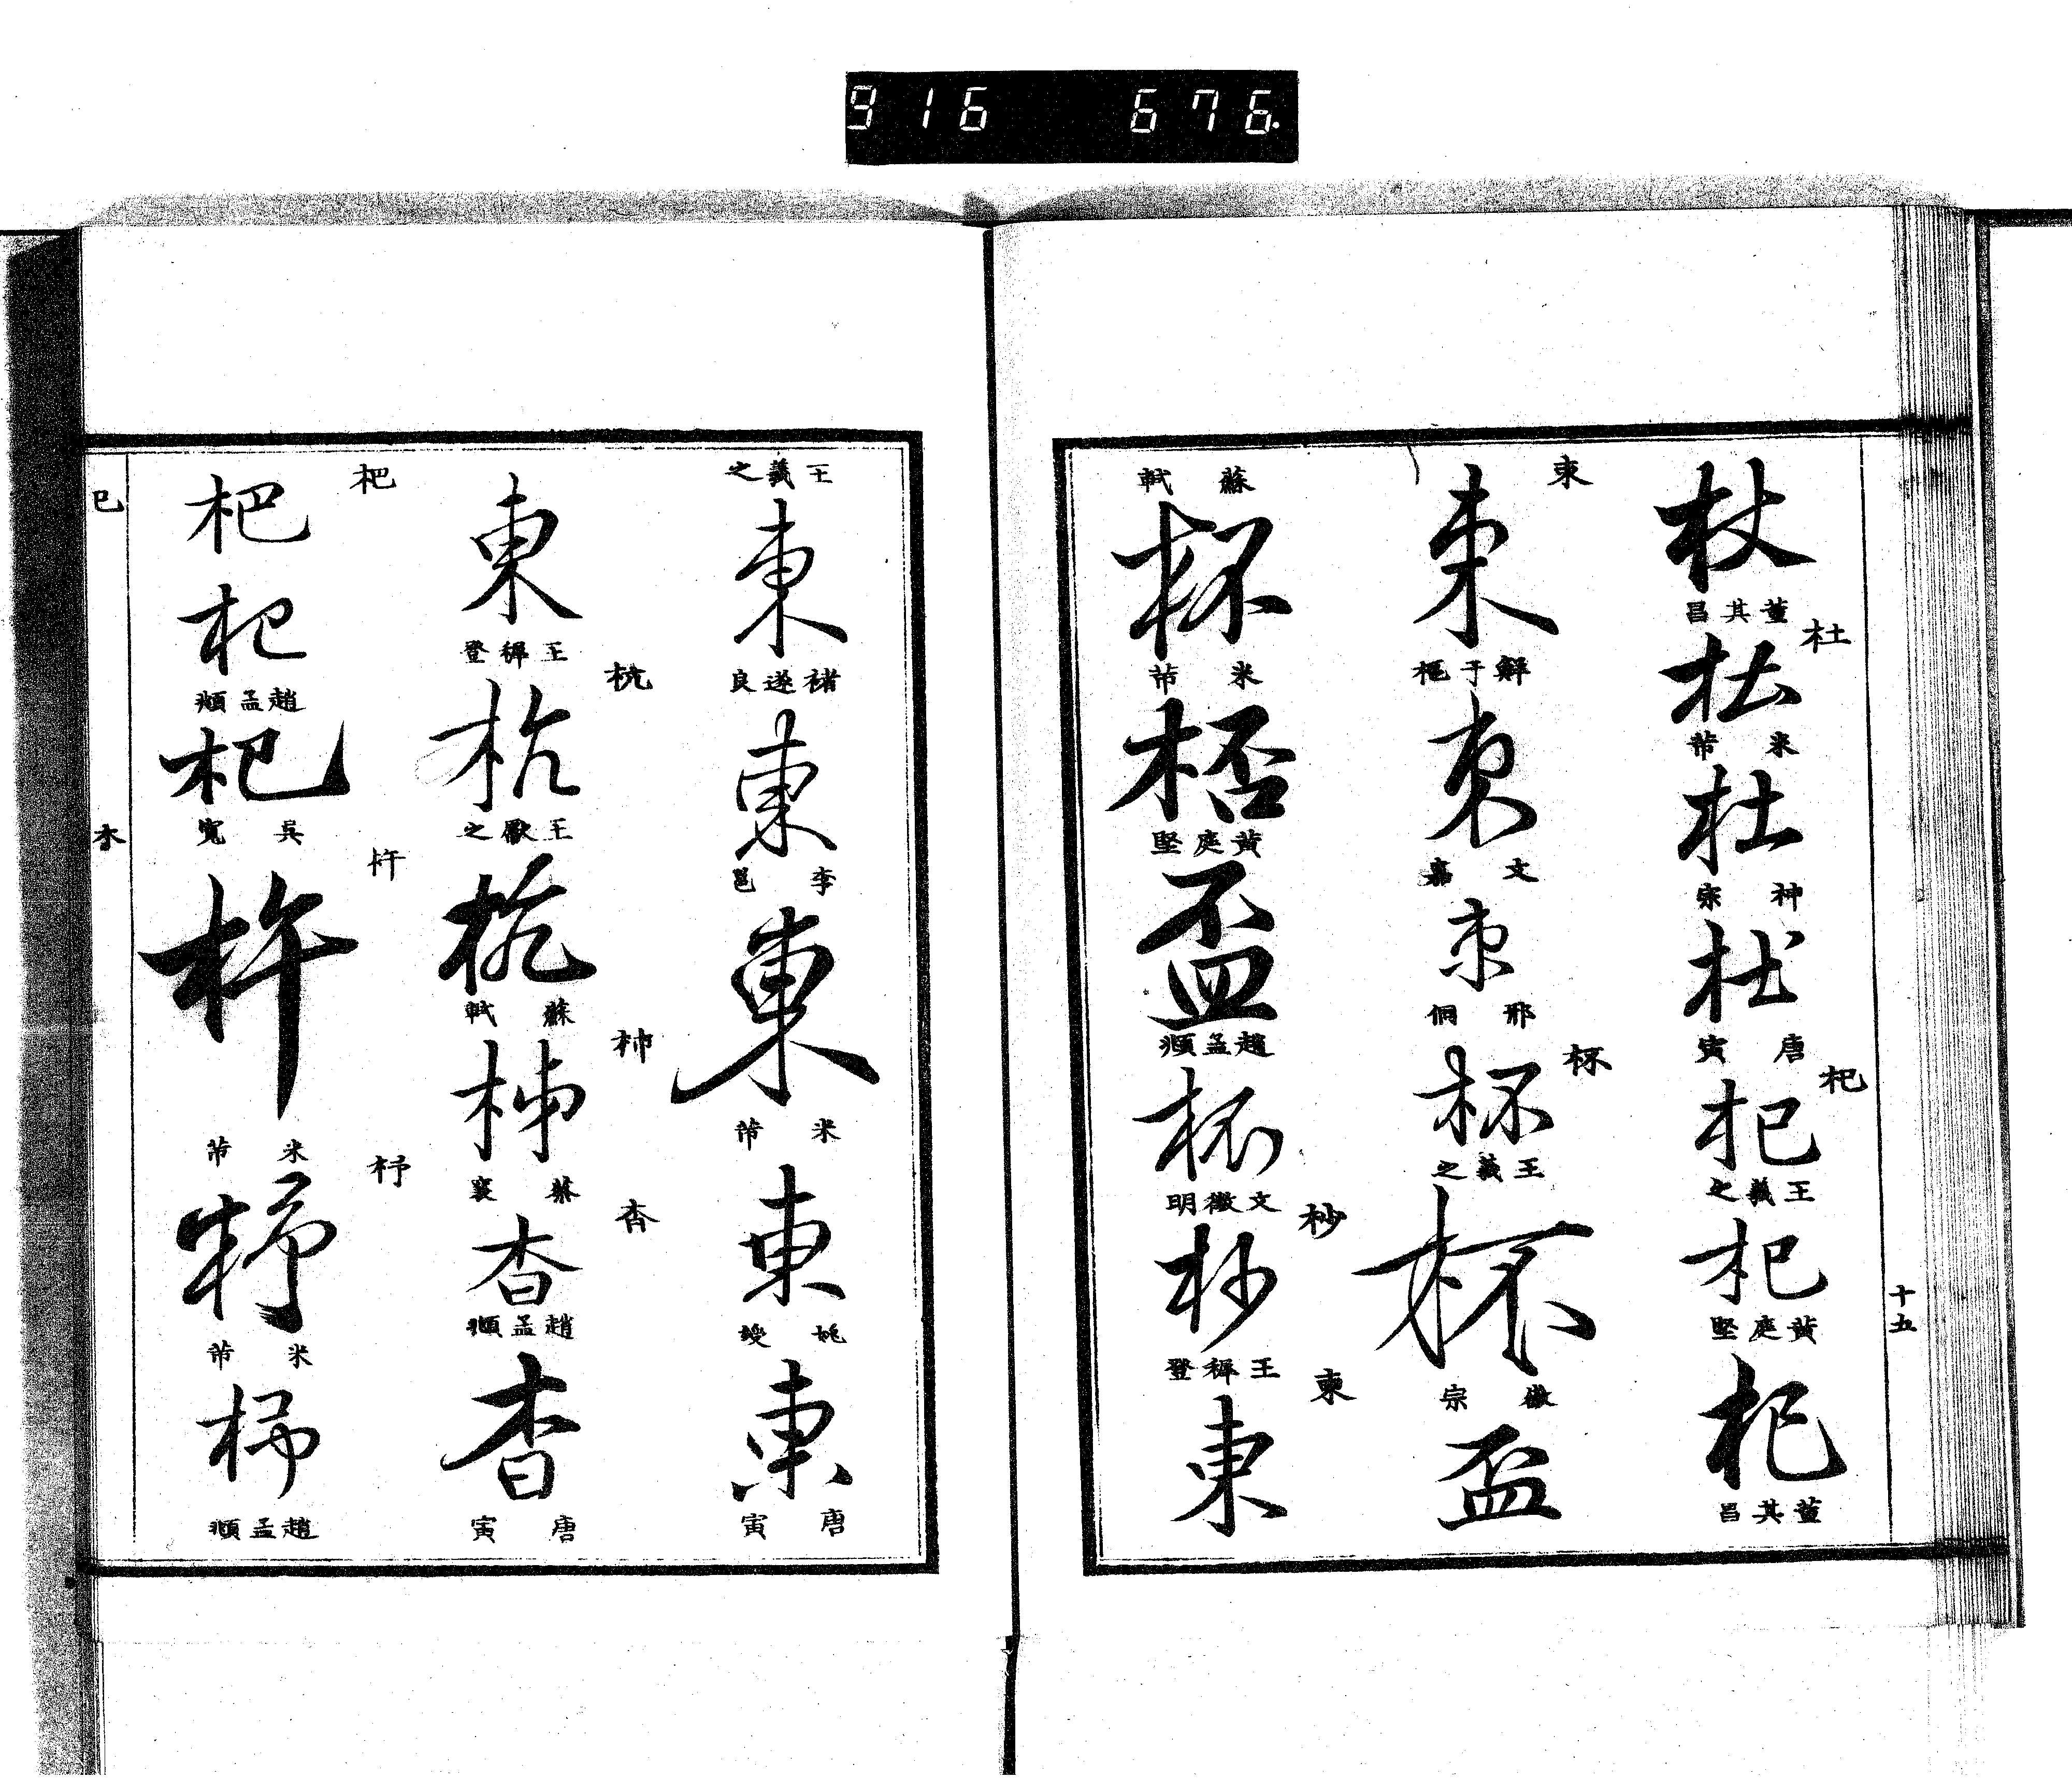 916 676
十五
杖
董其昌
杜
杜
米芾
杜
神宗
杜
唐寅
杞
杞
王羲之
杞
黃庭堅
杞
董其昌
束
束
鮮于樞
束
文嘉
束
邢侗
杯
杯
王羲之
杯
徽宗
盃
蘇軾
杯
米芾
桮
黃庭堅
盃
趙孟頫
杯
文徵明
杪
杪
王穉登
東
東
王羲之
東
褚遂良
東
李邕
東
米芾
東
姚綬
東
唐寅
東
王穉登
杭
杭
王獻之
杭
蘇軾
柹
柹
蔡襄
杳
杳
趙孟頫
杳
唐寅
杷
杷
杷
趙孟頫
杷
吳寬
杵
杵
米芾
杼
杼
米芾
杼
趙孟頫
巳
木